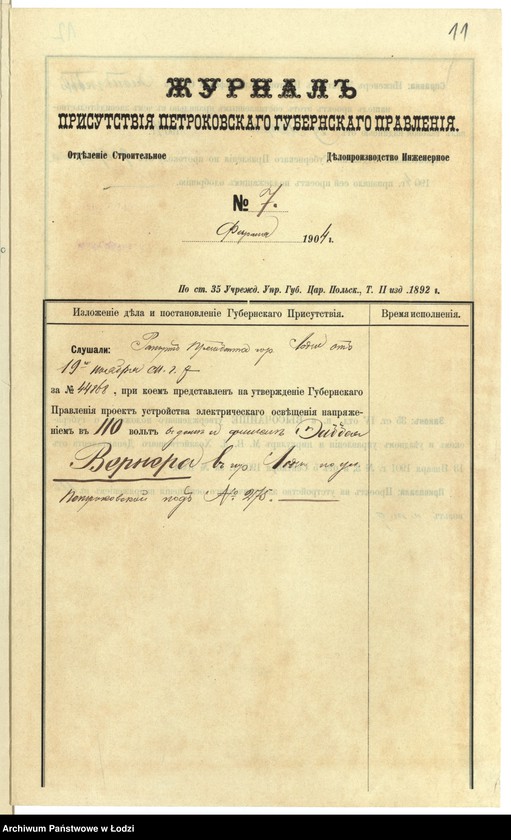 11
ЖУРНАЛЪ
ПРИСУТСТВІЯ ПЕТРОКОВСКАГО ГУБЕРНСКАГО ПРАВЛЕНІЯ.
Отдѣленіе Строительное Дѣлопроизводство Инженерное
№ 7.
1904 г.
По ст. 35 Учрежд. Упр. Губ. Цар. Польск., Т. II изд .1892 г.
Изложеніе дѣла и постановленіе Губернскаго Присутствія. Время исполненія.
Слушали: Рапортъ Президента гор. Лодзи отъ
19го ноября
за № 44868, при коемъ представленъ на утвержденіе Губернскаго
Правленія проектъ устройства электрическаго освѣщенія напряже-
ніемъ въ 110 вольтъ въ домѣ и
Вернера въ гор. Лодзи по ул.
Петроковской подъ № 275.
Archiwum Państwowe w Łodzi